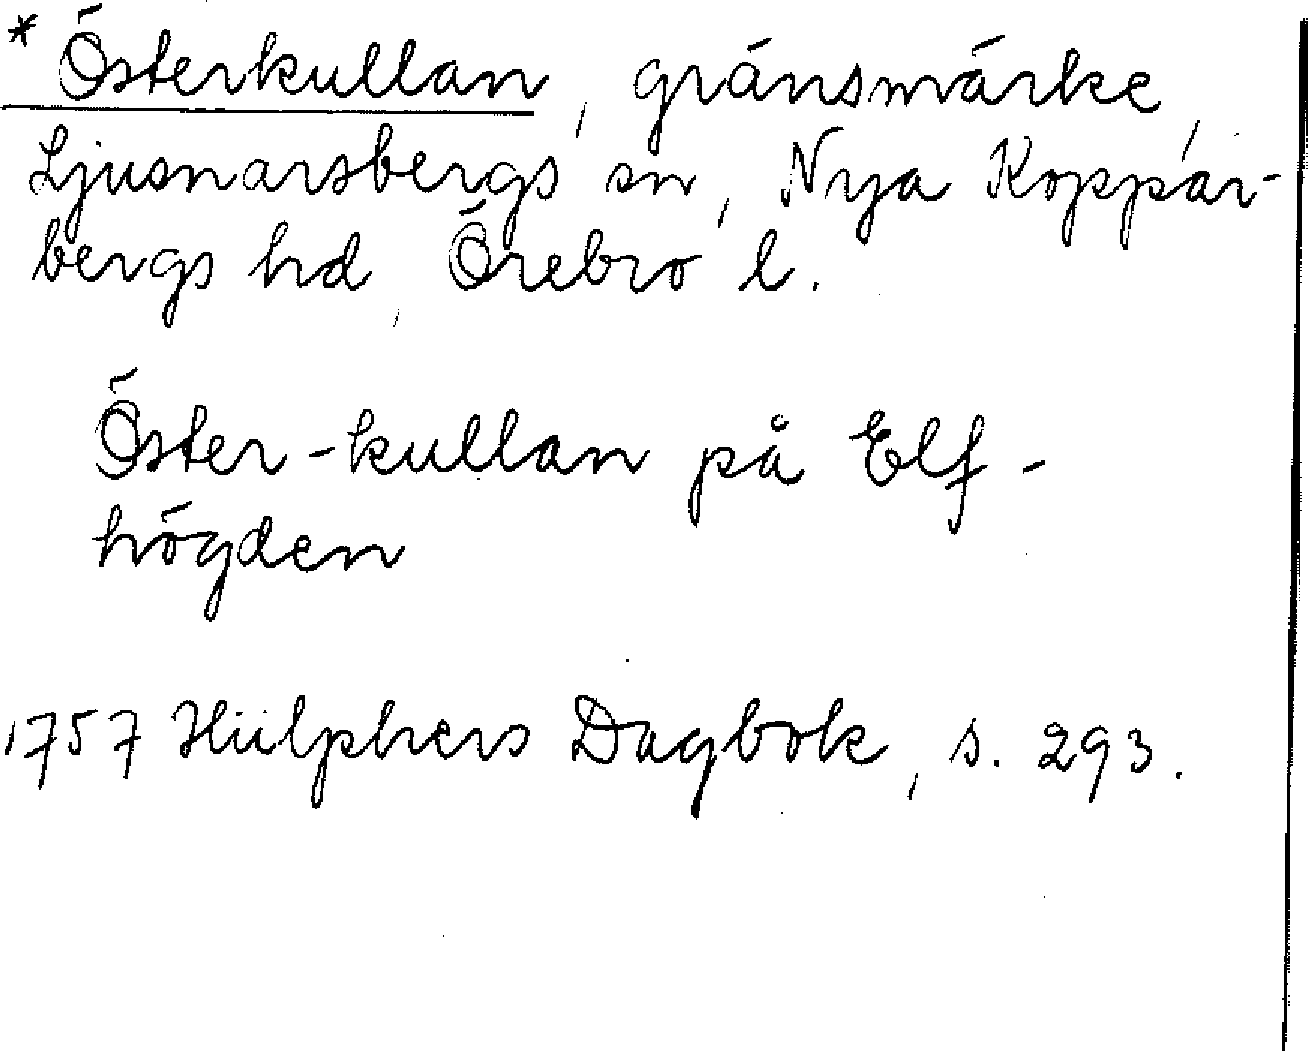 * Österkullan, gränsmärke,
Ljusnarsbergs sn, Nya Koppar-
bergs hd, Örebro l.
Öster-kullan på Elf-
högden
1757 Hülphers Dagbok, s. 293.